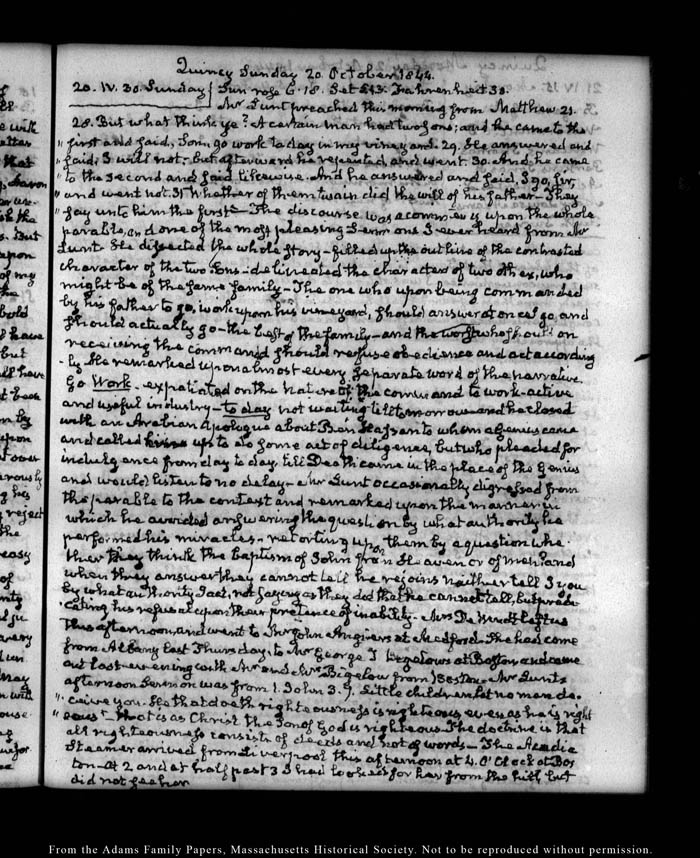 Quincy Sunday 20. October 1844.
20. IV. 30. Sunday Sun rose 6.18. Set 5.13. Fahrenheit 30.
Mr Lunt preached this morning from Matthew 21.
28. But what think ye? A certain man had two sons; and he came to the
" first and said, Son, go work to day in my vineyard. 29. He answered and
" said; I will not: but afterward he repented, and went. 30. And he came
" to the second and said likewise. And he answered and said, I go, Sir;
" and went not. 31 Whether of them twain did the will of his father— They
" say unto him the first— The discourse was a commentary upon the whole
parable, and one of the most pleasing Sermons I ever heard from Mr
Lunt. He dissected the whole story— filled up the outline of the contrasted
character of the two Sons— delineated the characters of two others, who
might be of the same family— The one who upon being commanded
by his father to go, work upon his vineyard, should answer at once I go, and
should actually go— the best of the family— and the worst who should on
receiving the command should refuse obedience and act according
-ly He remarked upon almost every separate word of the narrative.
Go Work— expatiated on the nature of the command to work— active
and useful industry— to day not waiting till tomorrow— and he closed
with an Arabian apologue about Ben Hassan to whom a Genius came
and called him up to do some act of diligence, but who pleaded for
indulgence from day to day, till Death came in the place of the Genius
and would listen to no delay— Mr Lunt occasionally digressed from
the parable to the context and remarked upon the manner in
which he avoided answering the question by what authority he
performed his miracles— retorting upon them by a question whe-
ther they think the baptism of John from Heaven or of men? and
when they answer they cannot tell he rejoins neither tell I you
by what authority I act, not saying as they did that he cannot tell, but predi-
cating his refusal upon their pretence of inability— Mrs De Wint left us
this afternoon, and went to Mr John Angiers at Medford. She had come
from Albany last Thursday, to Mr George T Bigelows at Boston and came
out last evening with Mr and Mrs Bigelow from Boston— Mr Lunt's
afternoon Sermon was from 1. John 3.7. Little children, let no man de-
" ceive you: He that doeth righteousness is righteous even as he is right
" eous— that is as Christ the Son of God is righteous— The doctrine is that
all righteousness consists of deeds and not of words— The Acadia
Steamer arrived from Liverpool this afternoon at 4. O'Clock at Bos
ton— At 2 and at half past 3 I had looked for her from the hill, but
did not see her
From the Adams Family Papers, Massachusetts Historical Society. Not to be reproduced without permission.